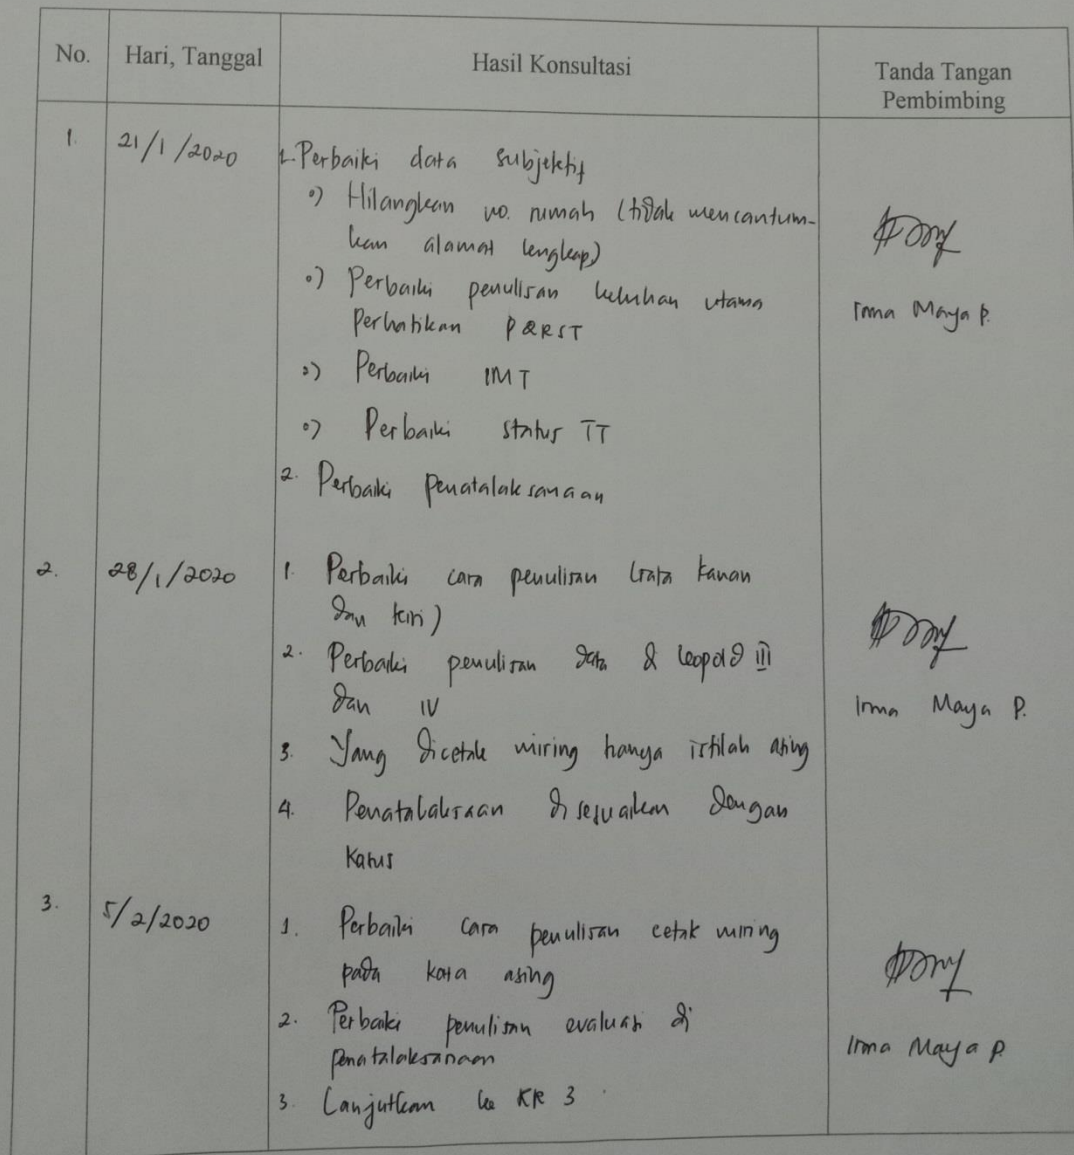 No. Hari, Tanggal Hasil Konsultasi Tanda Tangan
Pembimbing
1. 21/1/2020 1. Perbaiki data subjektif
o) Hilangkan no. rumah (tidak mencantum-
kan alamat lengkap)
o) Perbaiki penulisan keluhan utama
Perhatikan PQRST
Irma Maya P.
o) Perbaiki IMT
o) Perbaiki status TT
2. Perbaiki penatalaksanaan
2. 28/1/2020 1. Perbaiki cara penulisan (rata kanan
dan kiri)
2. Perbaiki penulisan data di leopold III
dan IV
Irma Maya P.
3. Yang dicetak miring hanya istilah asing
4. Penatalaksaan disesuaikan dengan
kasus
3. 5/2/2020 1. Perbaiki cara penulisan cetak miring
pada kata asing
2. Perbaiki penulisan evaluasi di
penatalaksanaan
Irma Maya P
3. Lanjutkan ke KK 3